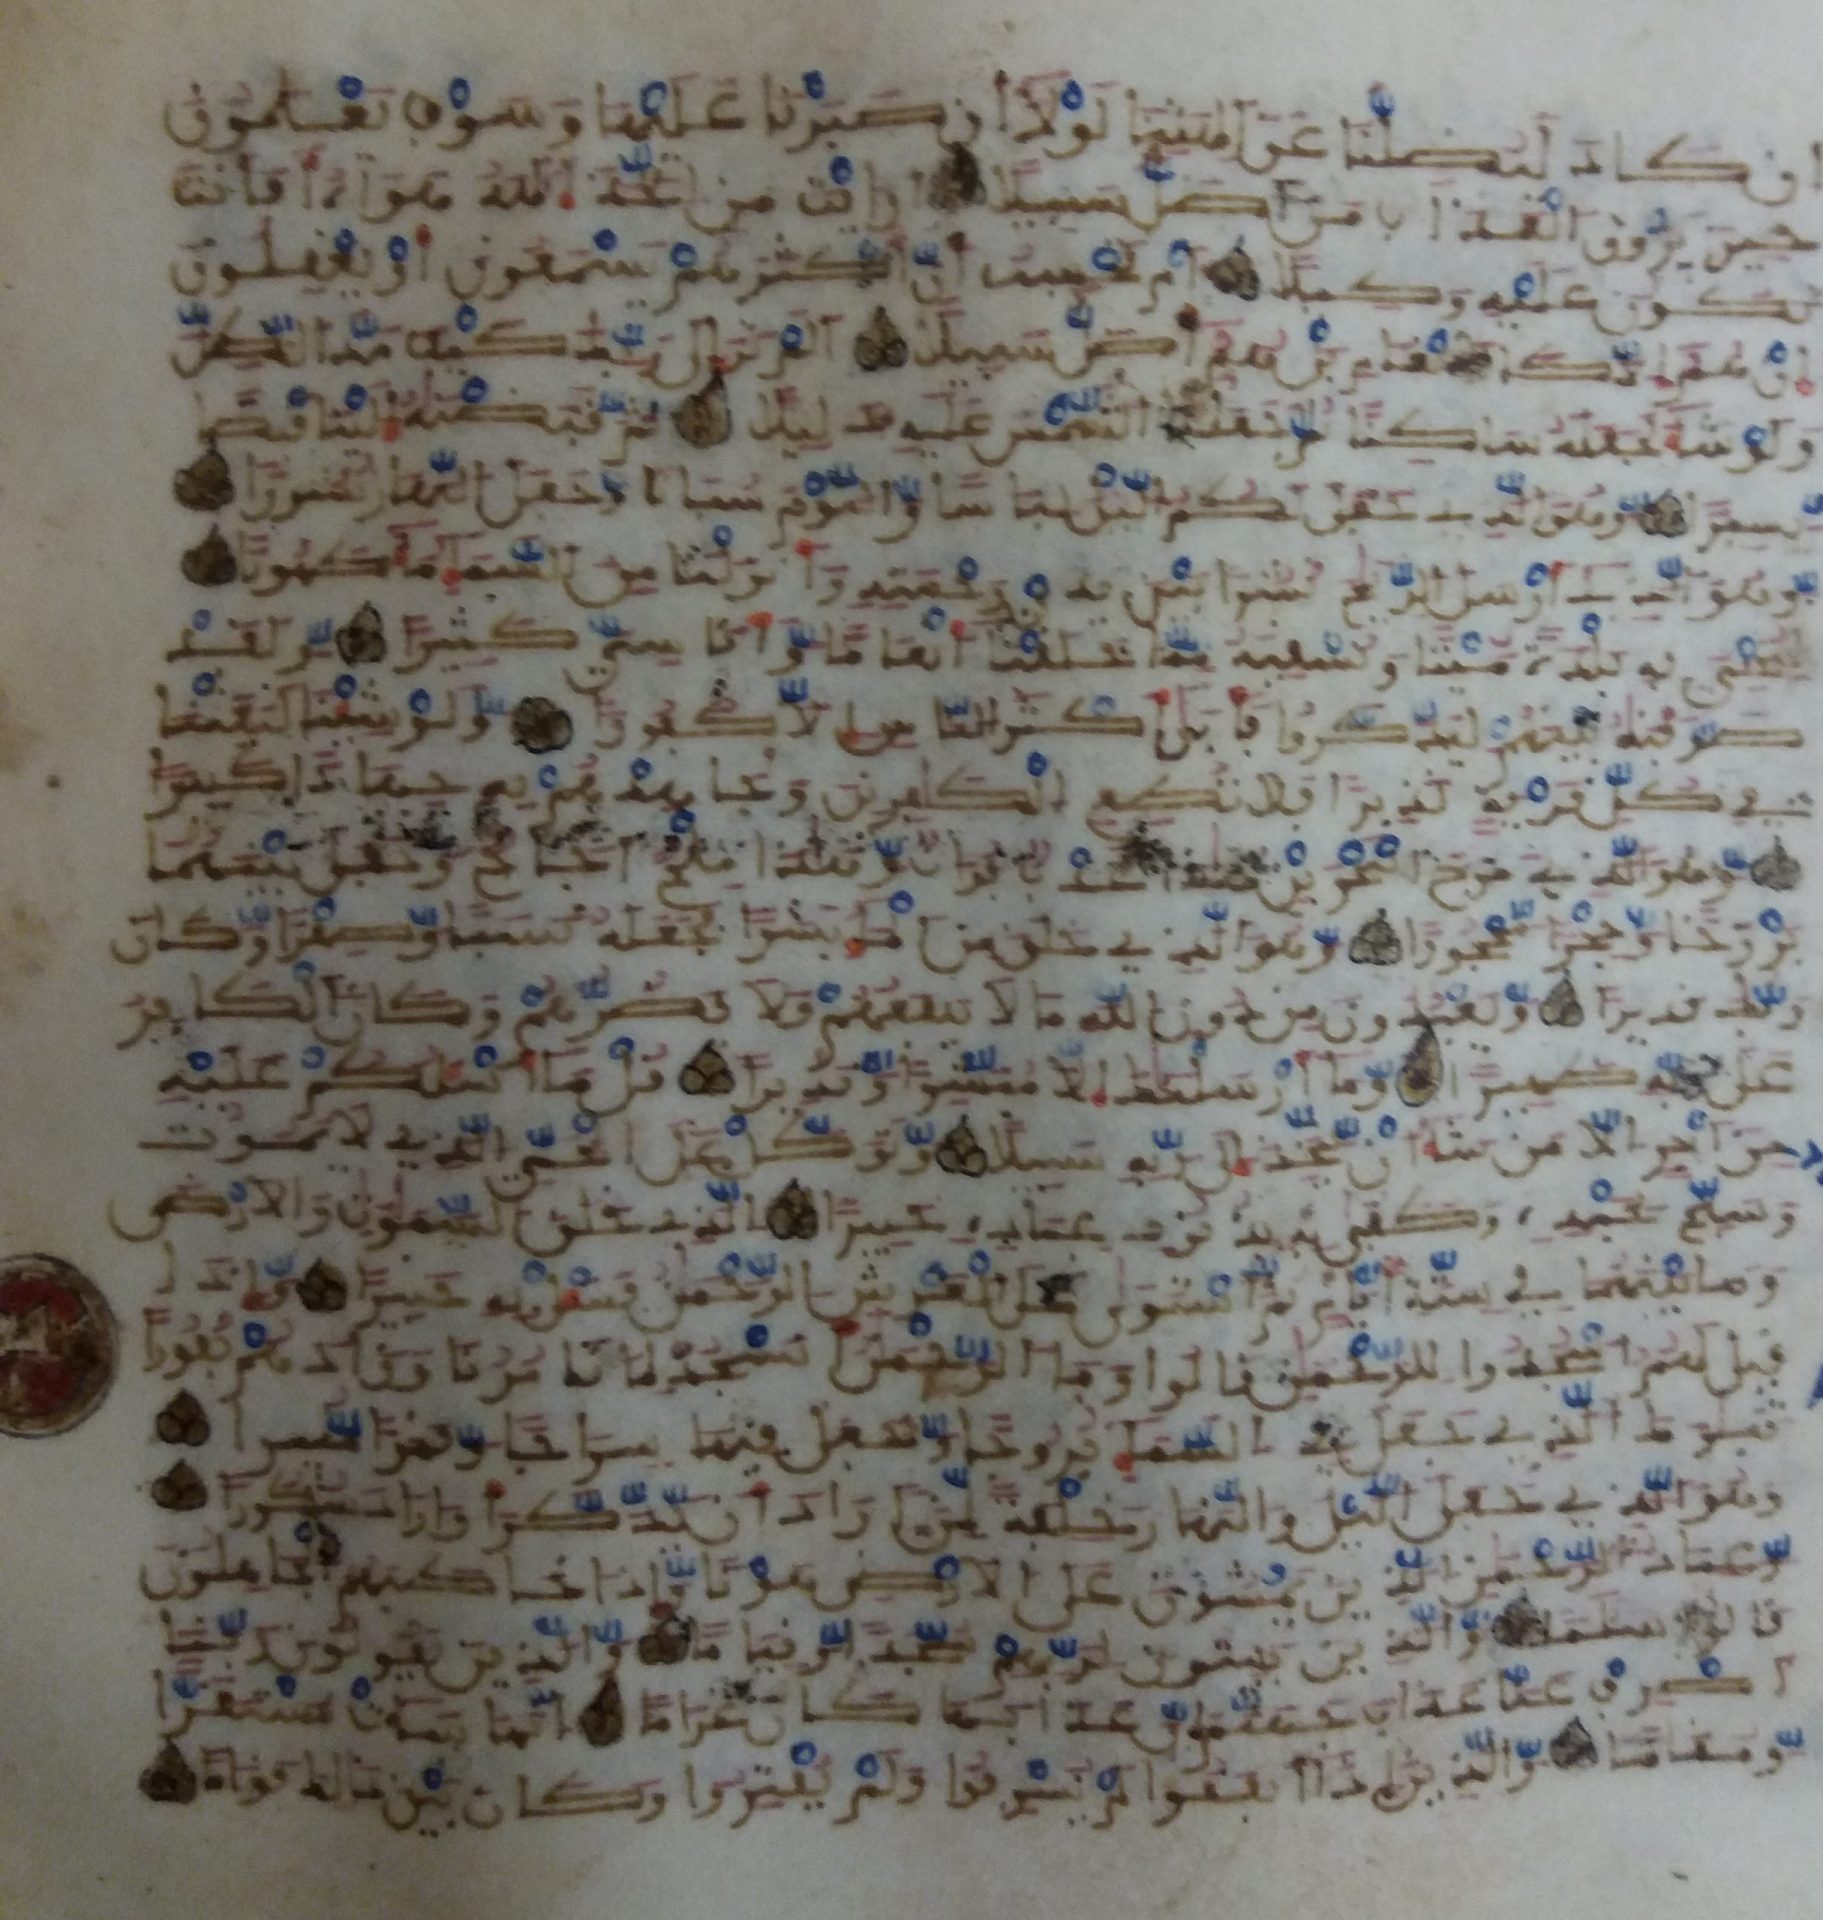 ان كاد ليضلنا عن الهتنا لولا ان صبرنا عليها وسوف يعلمون
حين يرون العذاب من اضل سبيلا ارايت من اتخذ الهه هويه افانت
تكون عليه وكيلا ام تحسب ان اكثرهم يسمعون او يعقلون
ان هم الا كالانعم بل هم اضل سبيلا الم تر الى ربك كيف مد الظل
ولو شا لجعله ساكنا ثم جعلنا الشمس عليه دليلا ثم قبضنه الينا قبضا
يسيرا وهو الذي جعل لكم اليل لباسا والنوم سباتا وجعل النهار نشورا
وهو الذي ارسل الريح نشرا بين يدي رحمته وانزلنا من السما ما طهورا
لنحي به بلدة ميتا ونسقيه مما خلقنا انعاما واناسي كثيرا ولقد
صرفنه بينهم ليذكروا فابى اكثر الناس الا كفورا ولو شينا لبعثنا
في كل قرية نذيرا فلا تطع الكافرين وجاهدهم به جهادا كبيرا
وهو الذي مرج البحرين هذا عذب فرات وهذا ملح اجاج وجعل بينهما
برزخا وحجرا محجورا وهو الذي خلق من الما بشرا فجعله نسبا وصهرا وكان
ربك قديرا ويعبدون من دون الله ما لا ينفعهم ولا يضرهم وكان الكافر
على ربه ظهيرا وما ارسلنك الا مبشرا ونذيرا قل ما اسلكم عليه
من اجر الا من شا ان يتخذ الى ربه سبيلا وتوكل على الحي الذي لا يموت
وسبح بحمده وكفى به بذنوب عباده خبيرا الذي خلق السموت والارض
وما بينهما في ستة ايام ثم استوى على العرش الرحمن فسل به خبيرا واذا
قيل لهم اسجدوا للرحمن قالوا وما الرحمن انسجد لما تامرنا وزادهم نفورا
تبرك الذي جعل في السما بروجا وجعل فيها سراجا وقمرا منيرا
وهو الذي جعل اليل والنهار خلفة لمن اراد ان يذكر او اراد شكورا
وعباد الرحمن الذين يمشون على الارض هونا واذا خاطبهم الجاهلون
قالوا سلما والذين يبيتون لربهم سجدا وقياما والذين يقولون ربنا
اصرف عنا عذاب جهنم ان عذابها كان غراما انها سات مستقرا
ومقاما والذين اذا انفقوا لم يسرفوا ولم يقتروا وكان بين ذلك قواما